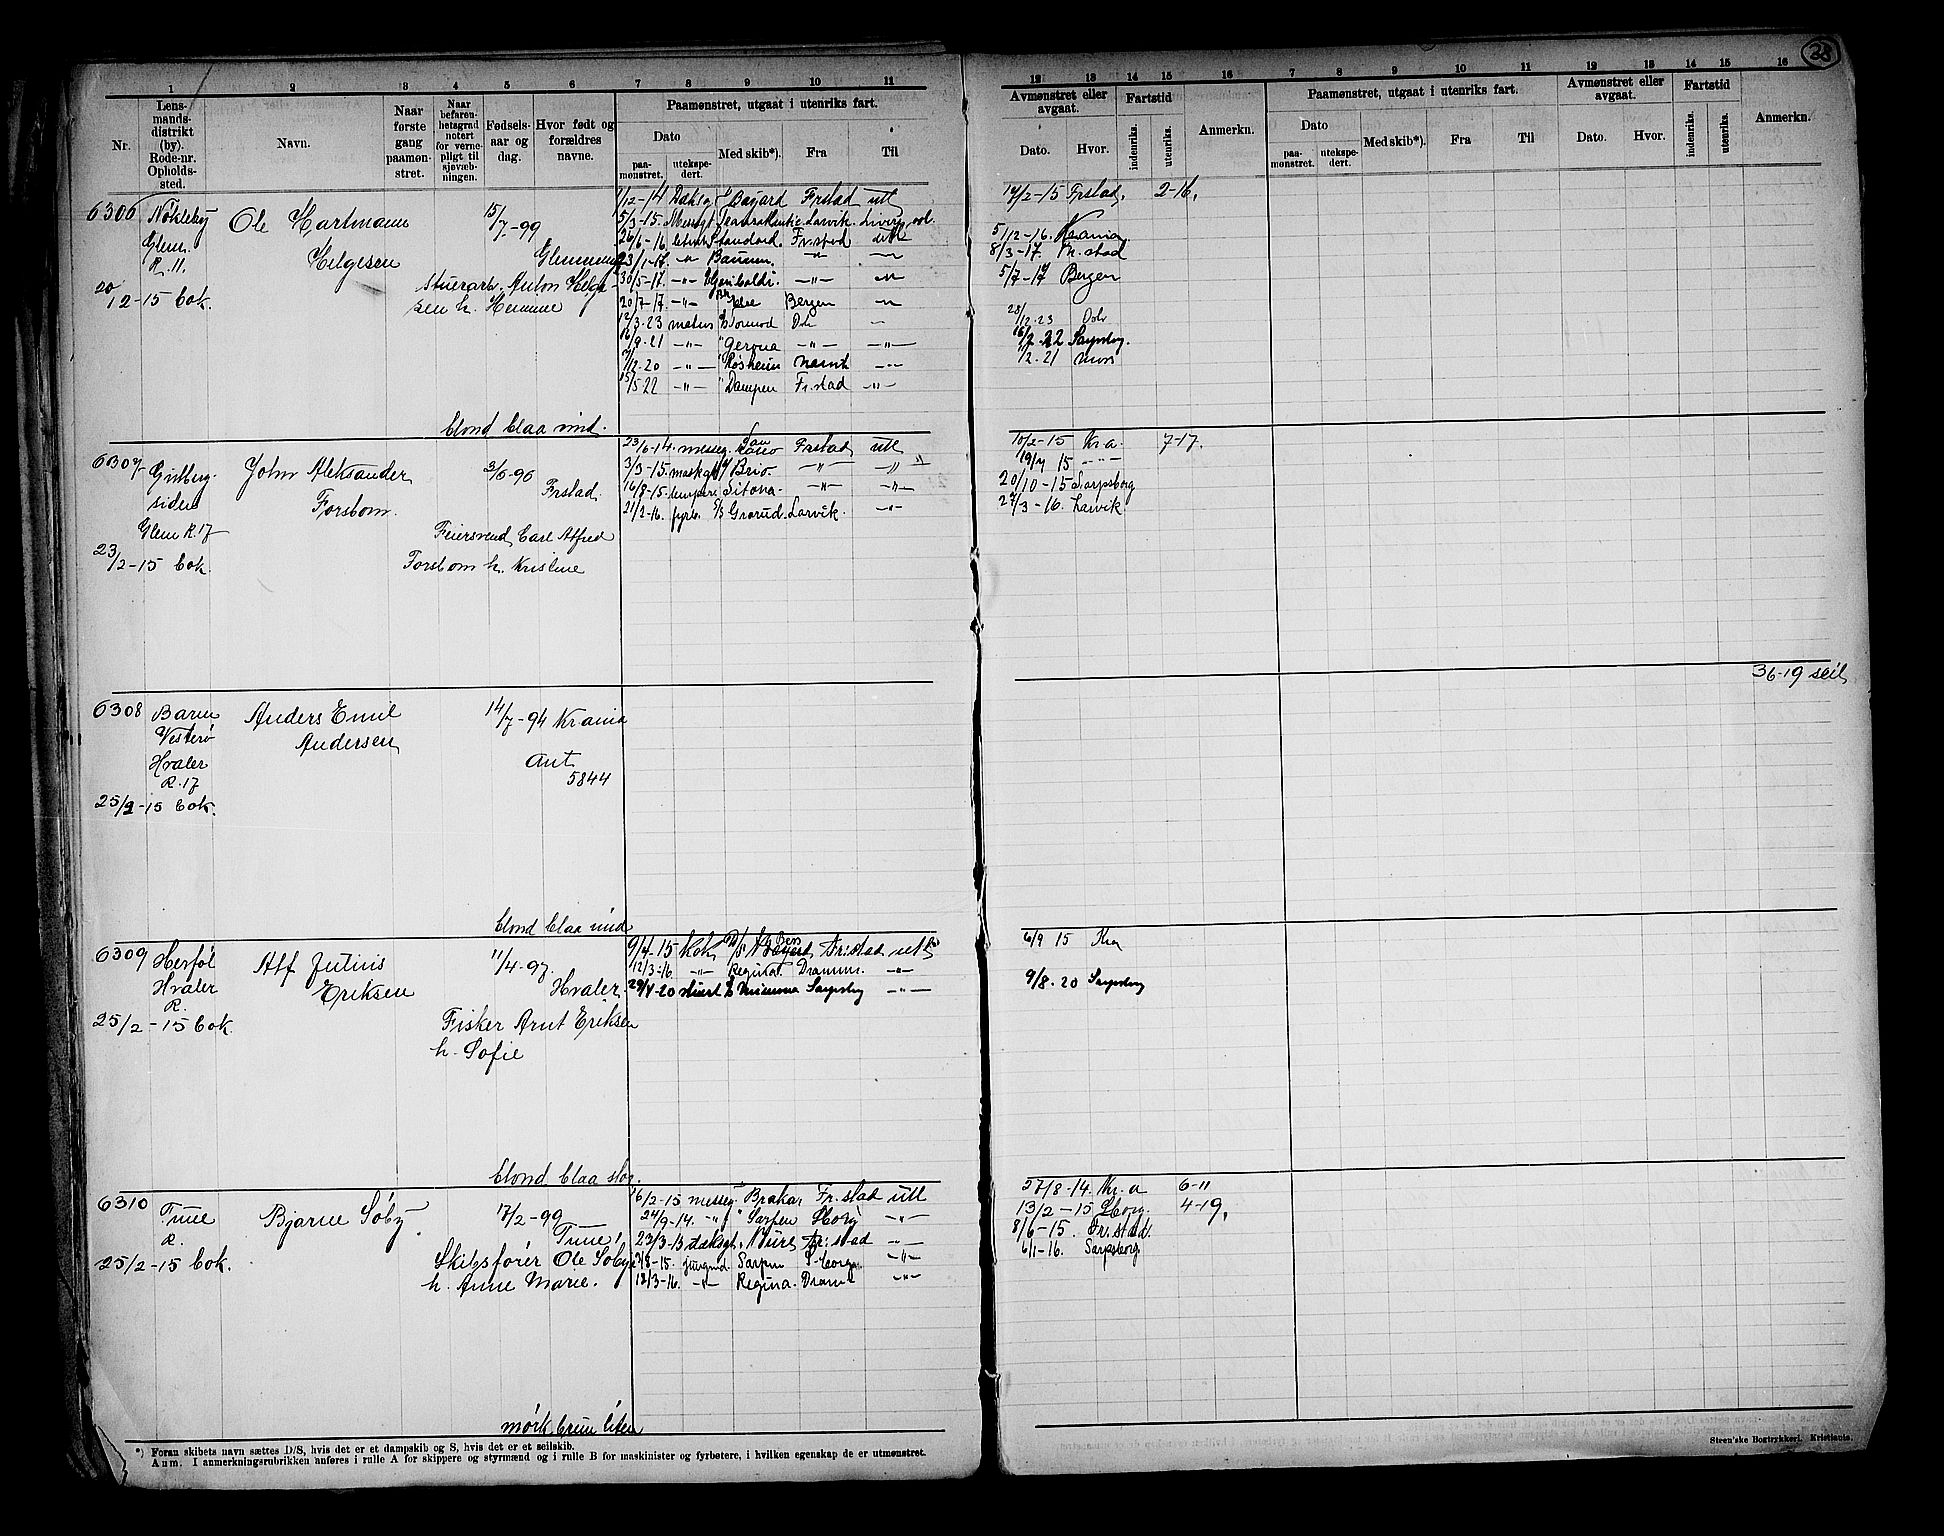 28
1 2 3 4 5 6 7 8 9 10 11
Nr.
Lens-
mands-
distrikt
(by).
Rode-nr.
Opholds-
sted.
Navn.
Naar
første
gang
paamøn-
stret.
Naar
befaren-
hetsgrad
notert
for verne-
pligt til
sjøvæb-
ningen.
Fødsels-
aar og
dag.
Hvor født og
forældres
navne.
Paamønstret, utgaat i utenriks fart.
Dato
paa-
mønstret.
utekspe-
dert.
Med skib*).
Fra
Til
12 13 14 15 16 7 8 9 10 11 12 13 14 15 16
Avmønstret eller
avgaat.
Dato. Hvor.
Fartstid
indenriks.
utenriks.
Anmerkn.
Paamønstret, utgaat i utenriks fart.
Dato
paa-
mønstret.
utekspe-
dert.
Med skib*). Fra Til
Avmønstret eller
avgaat.
Dato. Hvor.
Fartstid
indenriks.
utenriks.
Anmerkn.
6306 Nøkleby Ole Hartmann 15/7-99
Glem. Helgesen Glemminge
R. 11.
Stuerarb. Anton Helge-
sen h. Hermine
20/12-15 bok.
1/12-14 Bayard Frstad utl
5/3-15. Larvik.
26/6-16 Standard. Fr.stad utl
23/1-17. -"- -"-
30/5-17. -"- Garibaldi. -"-
20/7-17. -"- Bergen
12/3-23 matros Tormod Oslo
16/9-21 -"- "Gerona -"- -"-
-"- "Røsheim
15/5-22 -"- "Dampen Fr.stad -"-
blond blaa mid.
14/2-15 Frstad. 2-16.
5/12-16. Krania
8/3-17. Fr.stad
5/7-17 Bergen
28/12-23 Oslo
16/2-22 Sarpsbg.
/2-21 Moss
6307 Gritberg- John Aleksander 3/6-96
siden Forsbom. Frstad.
Glem R. 17
Feiersvend Carl Alfred
23/2-15 bok. Forsbom h. Kristine
23/6-14. messeg. Frstad utl
3/3-15. Brio -"- -"-
16/8-15. Sitona -"- -"-
21/2-16. fyrb. Grorud. Larvik. -"-
10/2-15 Kr.a. 7-17.
19/7 15 -"-
20/10-15 Sarpsborg
27/3-16. Larvik
36-19 seil
6308 Barm Anders Emil 14/7-94 Krania
Vesterø Andersen
Hvaler Ant
R. 17 5844
25/2-15 bok.
blond blaa mid
6309 Herføl Alf Julius 11/4-97.
Hvaler Eriksen Hvaler
R.
25/2-15 bok. Fisker Arnt Eriksen
h. Sofie
9/4-15 kok Fr.stad utl
12/3-16. -"- Regina. Dramm. -"-
29/4-20 stuert Minerva Sarpsbg -"-
blond blaa stor.
6/9 15
9/8-20 Sarpsbg
6310 Tune Bjarne Søby. 17/2-99
R. Tune,
25/2-15 bok. Skibsfører Ole Søby
h. Anne Marie.
16/2-15 messeg. Brakar Fr.stad utl
24/9-14. -"- "Sarpen S.borg -"-
23/3-15 dæksgt. Fr.stad -"-
/8-15. jungmd Sarpen S.borg -"-
12/3-16. -"- Regina. Dramn -"-
mørk brun liten
27/8-14. Kr.a 6-11
13/2-15 S.borg. 4-19.
8/6-15. Fr.stad.
6/1-16. Sarpsborg.
*) Foran skibets navn sættes D/S, hvis det er et dampskib og S, hvis det er et seilskib.
Anm. I anmerkningsrubrikken anføres i rulle A for skippere og styrmænd og i rulle B for maskinister og fyrbøtere, i hvilken egenskap de er utmønstret.
Steen'ske Bogtrykkeri. Kristiania.